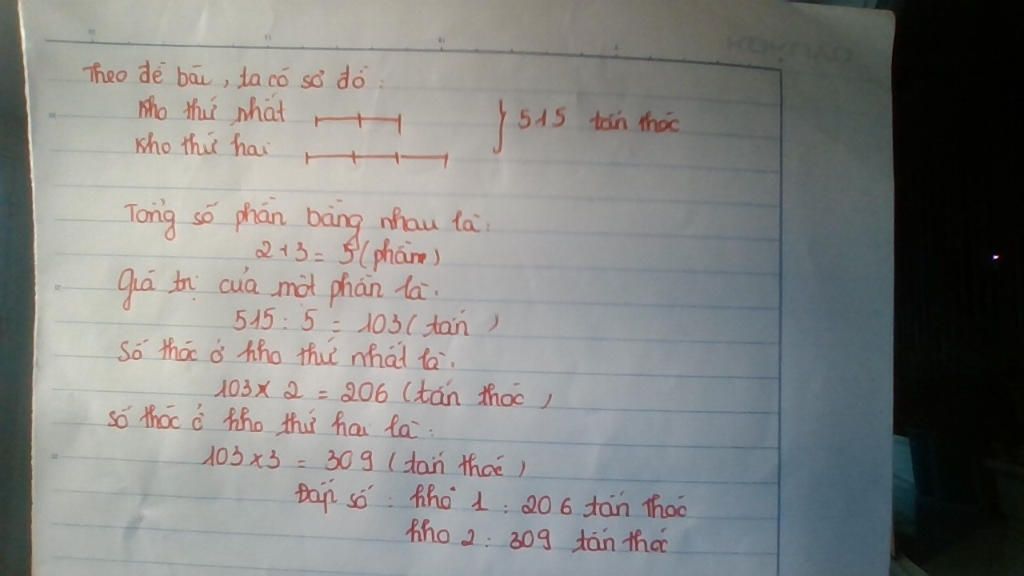 Theo đề bài, ta có sơ đồ:
Kho thứ nhất
} 515 tấn thóc
Kho thứ hai
Tổng số phần bằng nhau là:
2+3 = 5 (phần)
Giá trị của một phần là.
515 : 5 = 103 (tấn)
Số thóc ở kho thứ nhất là.
103 x 2 = 206 (tấn thóc)
Số thóc ở kho thứ hai là:
103 x 3 = 309 (tấn thóc)
Đáp số : kho 1 : 206 tấn thóc
kho 2 : 309 tấn thóc